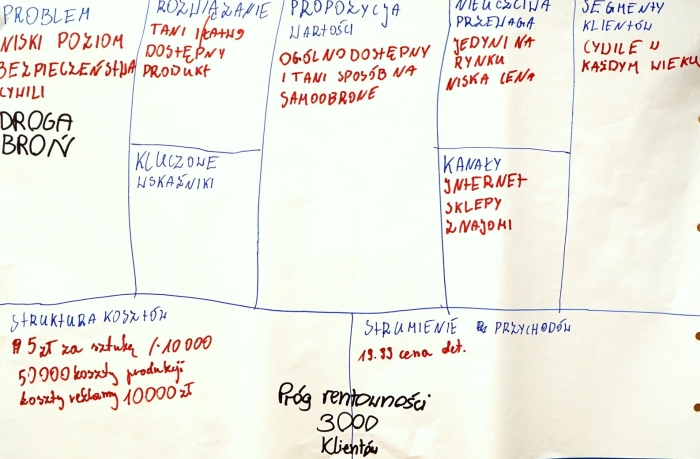 PROBLEM
NISKI POZIOM
BEZPIECZEŃSTWA
CYWILI
DROGA
BROŃ
ROZWIĄZANIE
TANI I ŁATWO
DOSTĘPNY
PRODUKT
KLUCZOWE
WSKAŹNIKI
PROPOZYCJA
WARTOŚCI
OGÓLNODOSTĘPNY
I TANI SPOSÓB NA
SAMOOBRONE
NIEUCZCIWA
PRZEWAGA
JEDYNI NA
RYNKU
NISKA CENA
KANAŁY
INTERNET
SKLEPY
ZNAJOMI
SEGMENTY
KLIENTÓW
CYWILE W
KAŻDYM WIEKU
STRUKTURA KOSZTÓW
5 zł za sztukę /·10 000
50 000 koszty produkcji
koszty reklamy 10 000 zł
STRUMIENIE PRZYCHODÓW
19.99 cena det.
Próg rentowności
3000
Klientów